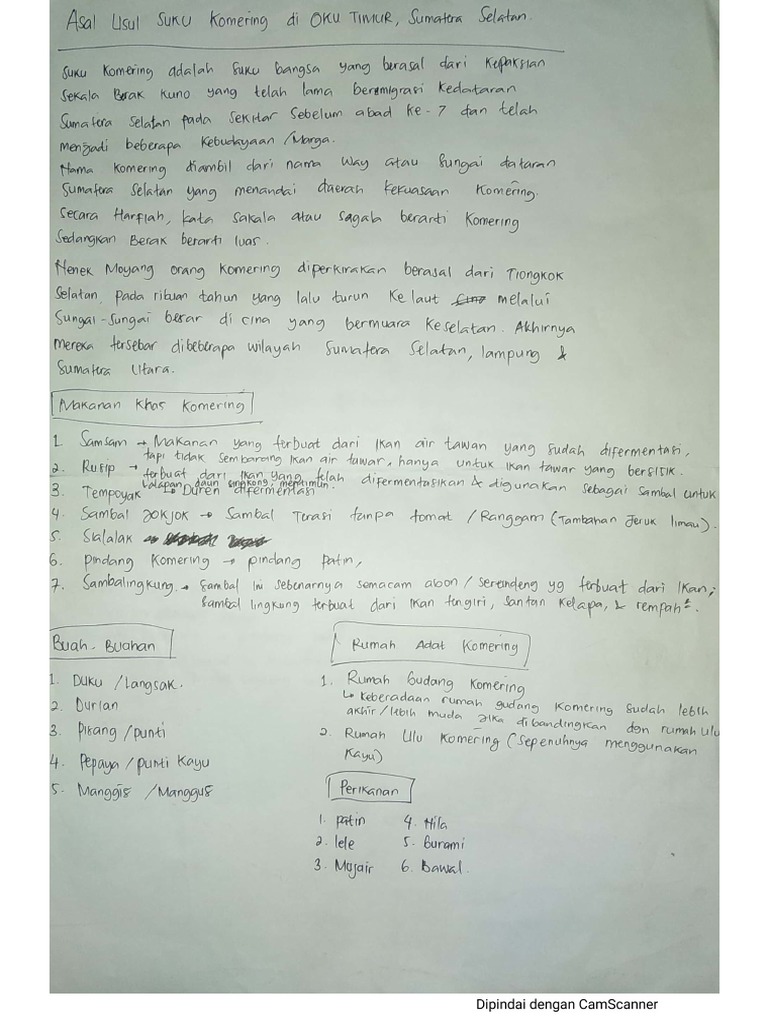 Asal Usul Suku Komering di OKU TIMUR, Sumatera Selatan.
Suku Komering adalah suku bangsa yang berasal dari Kepaksian
Sekala Berak Kuno yang telah lama beremigrasi Kedataran
Sumatera Selatan pada sekitar Sebelum abad ke-7 dan telah
menjadi beberapa Kebudayaan /Marga.
Nama Komering diambil dari nama Way atau Sungai dataran
Sumatera Selatan yang menandai daerah kekuasaan Komering.
Secara Harfiah, kata sakala atau sagala berarti Komering
Sedangkan Berak berarti luas.
Nenek Moyang orang Komering diperkirakan berasal dari Tiongkok
Selatan, pada ribuan tahun yang lalu turun Ke laut melalui
Sungai-sungai besar di cina yang bermuara Keselatan. Akhirnya
mereka tersebar dibeberapa wilayah Sumatera Selatan, lampung &
Sumatera Utara.
Makanan Khas Komering
1. Samsam → Makanan yang terbuat dari Ikan air tawan yang sudah difermentasi,
tapi tidak sembarang Ikan air tawar, hanya untuk Ikan tawar yang bersisik.
2. Rusip → terbuat dari Ikan yang telah difermentasikan & digunakan sebagai sambal untuk
lalapan, daun singkong, mentimun.
3. Tempoyak → Duren difermentasi
4. Sambal Jokjok → Sambal Terasi tanpa tomat / Ranggam (Tambahan Jeruk limau).
5. Sialalak →
6. Pindang Komering → pindang patin,
7. Sambalingkung → Sambal ini sebenarnya semacam abon / serundeng yg terbuat dari Ikan,
Sambal lingkung terbuat dari Ikan tengiri, santan kelapa, & rempah².
Buah-Buahan
1. Duku /Langsak.
2. Durian
3. Pisang /punti
4. Pepaya /punti Kayu
5. Manggis /Manggus
Rumah Adat Komering
1. Rumah Gudang Komering
↳ keberadaan rumah gudang Komering sudah lebih
akhir/lebih muda jika dibandingkan dgn rumah ulu
2. Rumah Ulu Komering (Sepenuhnya menggunakan
Kayu)
Perikanan
1. Patin
2. lele
3. Mujair
4. Nila
5. Gurami
6. Bawal.
Dipindai dengan CamScanner